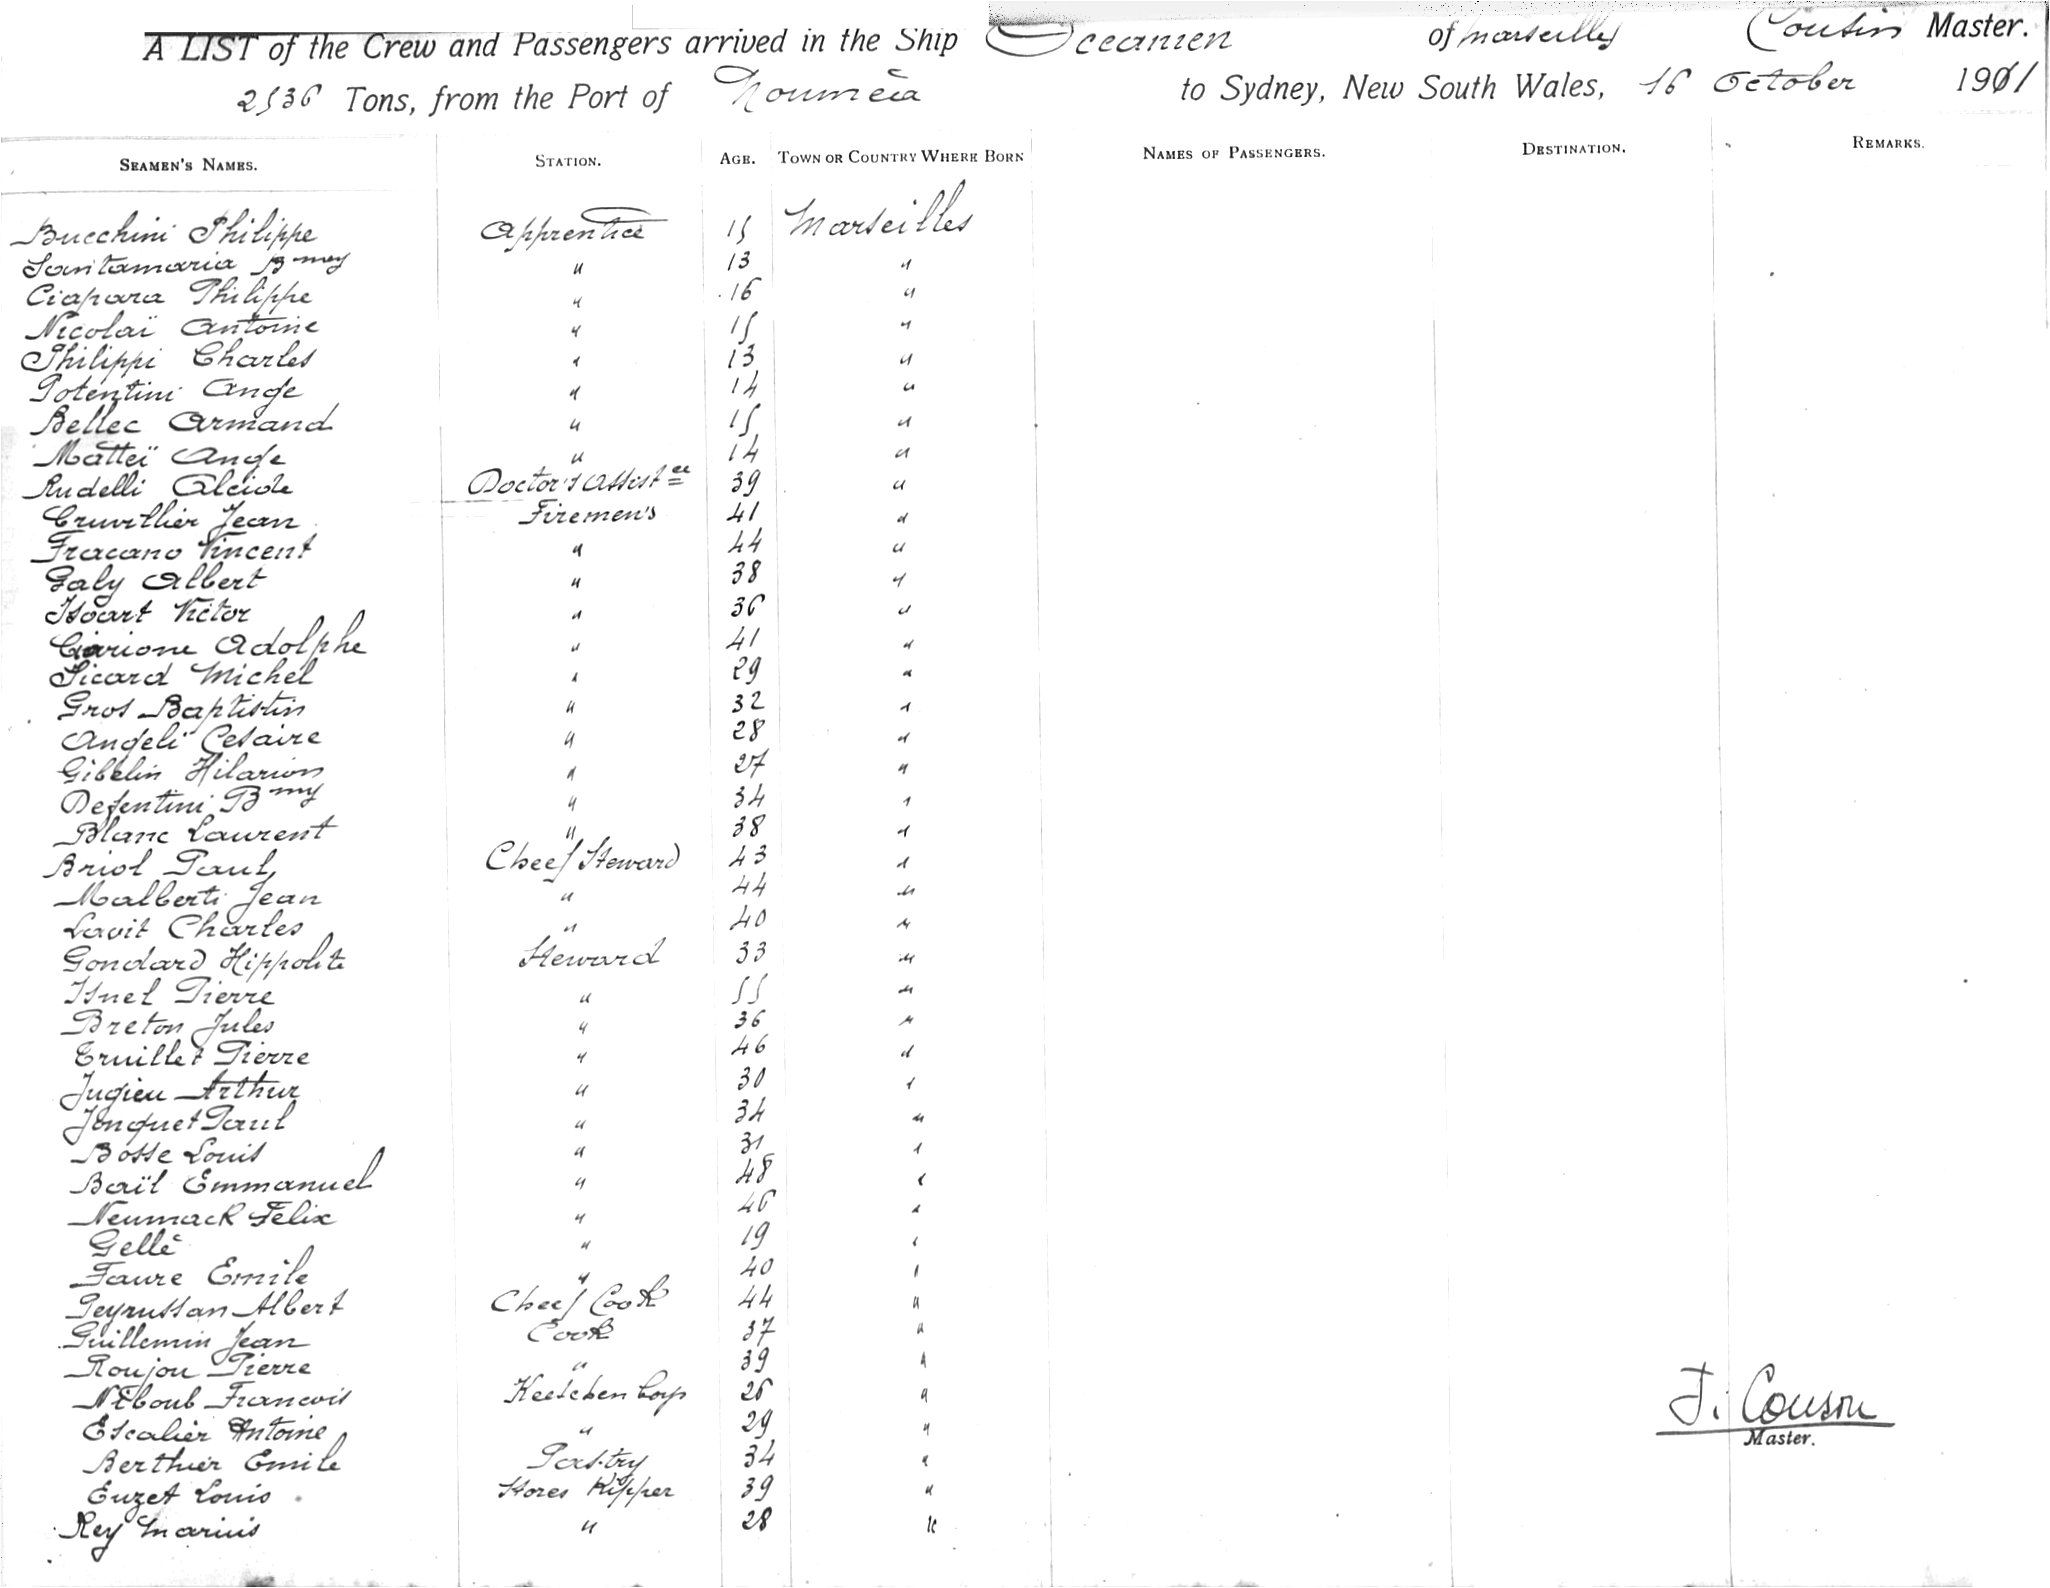 A LIST of the Crew and Passengers arrived in the Ship Oceanien of Marseilles Cousin Master.
2536 Tons, from the Port of Nouméa to Sydney, New South Wales, 16 October 1901
SEAMEN'S NAMES. STATION. AGE. TOWN OR COUNTRY WHERE BORN NAMES OF PASSENGERS. DESTINATION. REMARKS.
Bucchini Philippe Apprentice 15 Marseilles
Santamaria Bmey " 13 "
Ciapara Philippe " 16 "
Nicolaï Antoine " 15 "
Philippi Charles " 13 "
Potentini Ange " 14 "
Bellec Armand " 15 "
Matteï Ange " 14 "
Rudelli Alcide Doctor's Assistce 39 "
Cruvillier Jean Firemen's 41 "
Fracano Vincent " 44 "
Galy Albert " 38 "
Isoart Victor " 36 "
Adolphe " 41 "
Sicard Michel " 29 "
Gros Baptistin " 32 "
Angeli Cesaire " 28 "
Gibelin Hilarion " 27 "
Defentini Bmy " 34 "
Blanc Laurent " 38 "
Briol Paul Cheef Steward 43 "
Malberti Jean " 44 "
Lavit Charles " 40 "
Gondard Hippolite Steward 33 "
Isnel Pierre " 55 "
Breton Jules " 36 "
Truillet Pierre " 46 "
Jugieu Arthur " 30 "
Jonquet Paul " 34 "
Bosse Louis " 31 "
Baïl Emmanuel " 48 "
Neumack Felix " 46 "
Gellé " 19 "
Faure Emile " 40 "
Peyrussan Albert Cheef Cook 44 "
Guillemin Jean Cook 37 "
Roujou Pierre " 39 "
Niboul Francois Keetchen boys 26 "
Escalier Antoine " 29 "
Berthier Emile Pastry 34 "
Euzet Louis Stores Kipper 39 "
Rey Marius " 28 "
J. Cousin
Master.